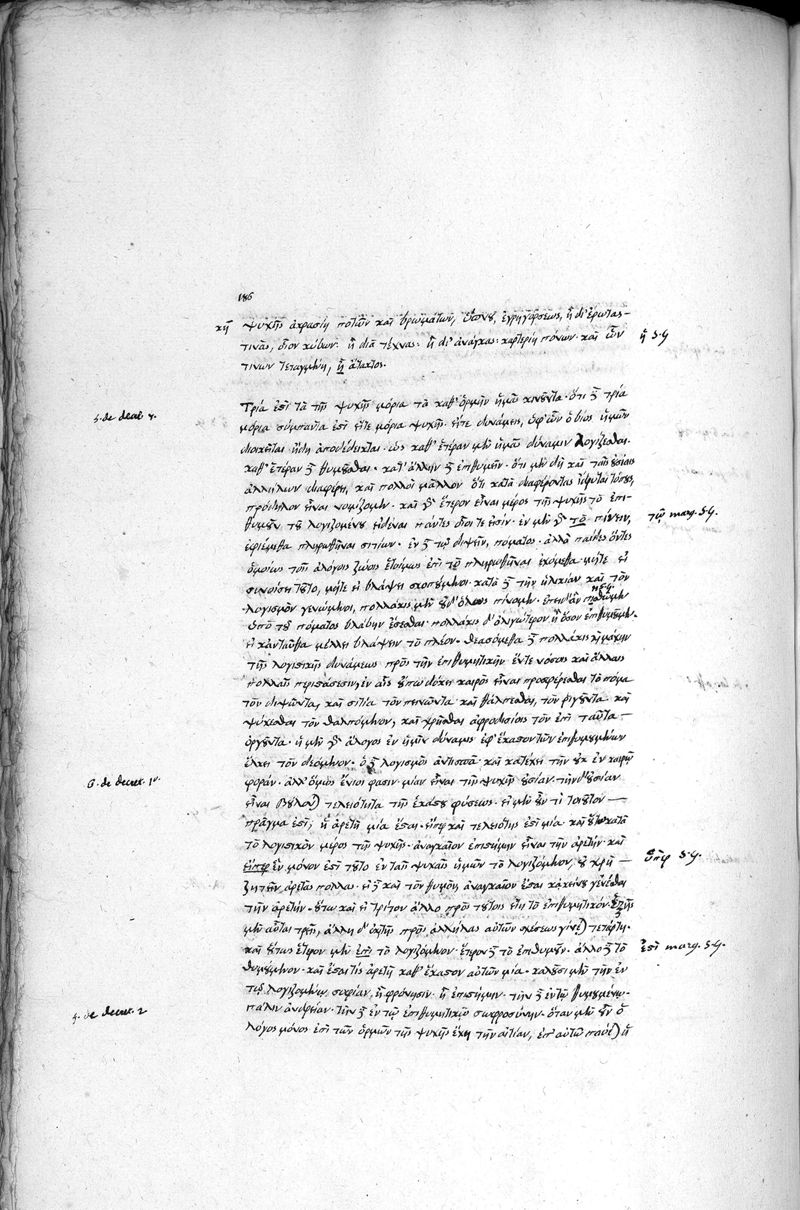 186
ψυχῆς ἀκρασίη ποτῶν καὶ βρωμάτων, ὕπνου, ἐγρηγόρσεως, ἢ δι' ἔρωτας
τινὰς, οἷον κύβων· ἢ διὰ τέχνας· ἢ δι' ἀνάγκας· καρτερίη πόνων· καὶ ὧν
ἢ 5.4
τινων τεταγμένη, ἢ ἄτακτος.
5. de decret. 7.
Τρία ἐστὶ τὰ τῆς ψυχῆς μόρια τὰ καθ' ὁρμὴν ἡμᾶς κινοῦντα. ὅτι δὲ τρία
μόρια σύμπαντα ἐστὶ εἴτε μόρια ψυχῆς, εἴτε δυνάμεις, ὑφ' ὧν ὁ βίος ἡμῶν
διοικεῖται ἤδη ἀποδέδεικται. ὡς καθ' ἑτέραν μὲν ἡμᾶς δύναμιν λογίζεσθαι.
καθ' ἑτέραν δὲ θυμοῦσθαι. κατ' ἄλλην δὲ ἐπιθυμεῖν. ὅτι μὲν δὴ καὶ ταῖς οὐσίαις
ἀλλήλων διαφέρει, καὶ πολλοὶ μᾶλλον ὅτι κατὰ διαφέροντας ἵδρυται τόπους,
πρόδηλον εἶναι νομίζομεν. καὶ γὰρ ἕτερον εἶναι μέρος τῆς ψυχῆς τὸ ἐπι-
θυμοῦν τοῦ λογιζομένου εἰδέναι πάντες οἷοί τε εἰσίν. ἐν μὲν γὰρ τὸ πίνειν,
τῷ marg. 5.4.
ἐφιέμεθα πληρωθῆναι σιτίων. ἐν δὲ τῷ διψεῖν, πόματος. ἀλλὰ παῖδες ὄντες
ὁμοίως τοῖς ἀλόγοις ζώοις ἑτοίμως ἐπὶ τὸ πληρωθῆναι ἐρχόμεθα μήτε εἰ
συνοίσει τοῦτο, μήτε εἰ βλάψει σκοπούμενοι. κατὰ δὲ τὴν ἡλικίαν καὶ τὸν
λογισμὸν γενόμενοι, πολλάκις μὲν οὐδ' ὅλως πίνομεν. ἐπειδὰν
ὑπὸ τοῦ πόματος βλάβην ἔσεσθαι. πολλάκις δ' ὀλιγώτερον ἢ ὅσον ἐπιθυμοῦμεν.
εἰ κἀνταῦθα μέλλει βλάψειν τὸ πλέον. θεασόμεθα δὲ πολλάκις μάχην
τῆς λογιστικῆς δυνάμεως πρὸς τὴν ἐπιθυμητικὴν ἔν τε νόσοις καὶ ἄλλαις
πολλαῖς περιστάσεσιν, ἐν αἷς οὔπω δόκει καιρὸς εἶναι προσφέρεσθαι τὸ πόμα
τὸν διψῶντα, καὶ σιτία τὸν πεινῶντα καὶ θάλπεσθαι, τὸν ῥιγοῦντα καὶ
ψύχεσθαι τὸν θαλπόμενον, καὶ χρῆσθαι ἀφροδισίοις τὸν ἐπὶ ταῦτα
ὁργῶντα. ἡ μὲν γὰρ ἄλογος ἐν ἡμῖν δύναμις ἐφ' ἕκαστον τῶν ἐπιθυμουμένων
ἕλκει τὸν δεόμενον. ὁ δὲ λογισμὸς ἀντισπᾷ καὶ κατέχει τὴν οὐκ ἐν καιρῷ
6. de decret. 1°.
φοράν. ἀλλ' ὅμως ἔνιοί φασιν μίαν εἶναι τῆς ψυχῆς οὐσίαν τὴν δ' οὐσίαν
εἶναι βούλονται τελειότητα τῆς ἑκάστου φύσεως. εἰ μὲν οὖν τι τοιοῦτον
πρᾶγμα ἐστὶ, ἡ ἀρετὴ μία ἔσται. εἴπερ καὶ τελειότης ἐστὶ μία. καὶ οὕτω κατὰ
τὸ λογιστικὸν μέρος τῆς ψυχῆς. ἀναγκαῖον ἐπιστήμην εἶναι τὴν ἀρετὴν. καὶ
εἴπερ ἓν μόνον ἐστὶ τοῦτο ἐν ταῖς ψυχαῖς ἡμῶν τὸ λογιζόμενον, οὐ χρὴ
εἴπερ 5.4.
ζητεῖν ἀρετὰς πολλὰς. εἰ δὲ καὶ τὸν θυμὸν, ἀναγκαῖον ἔσται κἀκείνου γενέσθαι
τὴν ἀρετήν. οὕτω καὶ εἰ τρίτον ἄλλο πρὸς τούτοις εἴη τὸ ἐπιθυμητικόν. ἑξῆς
μὲν αὗται τρεῖς, ἄλλη δ' ἐκ τῆς πρὸς ἀλλήλας αὐτῶν σχέσεως γίνεται τετάρτη.
καὶ οὕτως ἕτερον μὲν ἐπὶ τὸ λογιζόμενον. ἕτερον δὲ τὸ ἐπιθυμοῦν. ἄλλο δὲ τὸ
ἐστὶ marg. 5.4.
θυμούμενον. καὶ ἔσται τίς ἀρετὴ καθ' ἕκαστον αὐτῶν μία. καλοῦσι μὲν τὴν ἐν
4. de decret. 2
τῷ λογιζομένῳ, σοφίαν, ἢ φρόνησιν ἢ ἐπιστήμην. τὴν δὲ ἐν τῷ θυμουμένῳ
πάλιν ἀνδρείαν. τὴν δὲ ἐν τῷ ἐπιθυμητικῷ σωφροσύνην. ὅταν μὲν οὖν ὁ
λόγος μόνος ἐπὶ τῶν ὁρμῶν τῆς ψυχῆς ἔχῃ τὴν αἰτίαν, ἐπ' αὐτῷ